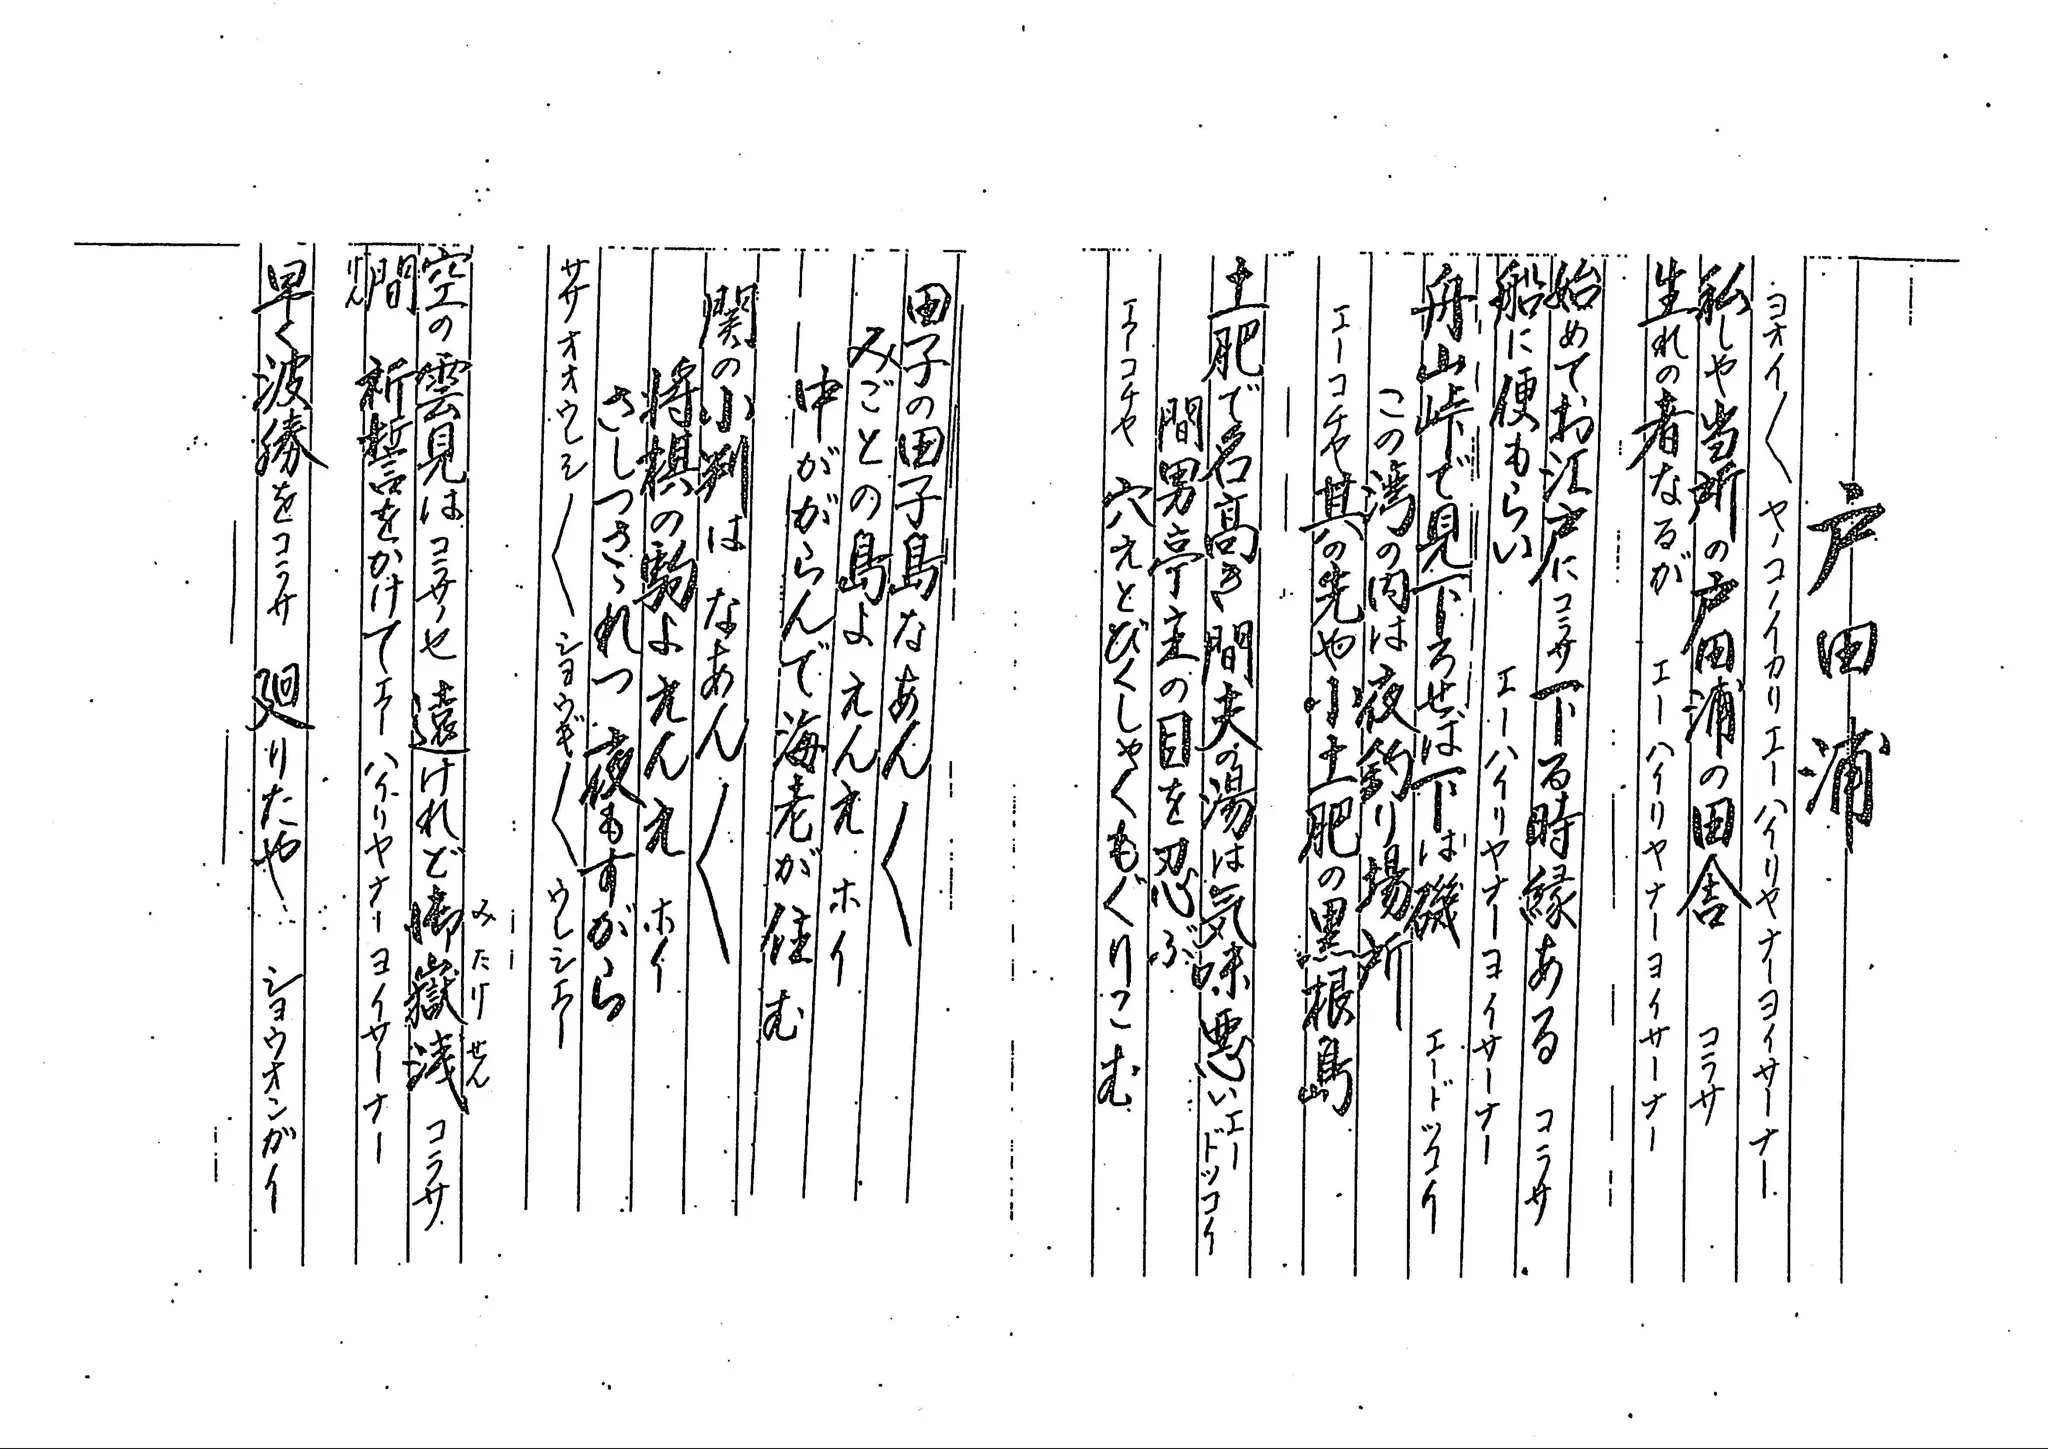 戸田浦
ヨオイ〱 ヤノコノイカリエーハイリヤナーヨイサーナー
私しや当所の戸田浦の田舎 コラサ
生れの者なるが エーハイリヤナーヨイサーナー
始めてお江戸にコラサ下る時縁ある コラサ
船に便もらい エーハイリヤナーヨイサーナー
舟山峠で見下ろせば下は磯 エードッコイ
この湾の内は夜釣り場所
エーコチヤ 其の先や小土肥の黒根島
土肥で名高き間夫の湯は気味悪いエードッコイ
間男亭主の目を忍ぶ
エーコチヤ 穴えとびくしゃくもぐりこむ
田子の田子島なあん〱
みごとの島よええんええホイ
中ががらんで海老が住む
関の小判はなあん〱
将棋の駒よええんええホイ
さしつさゝれつ 夜もすがら
ササオオウレシ〱ショウギ〱ウレシエー
空の雲見はコラサノセ 遠けれど御嶽浅 コラサ
みたけ せん
間 祈誓をかけてエーハイリヤナーヨイサーナー
けん
早く波勝をコラサ 廻りたや ションガイ